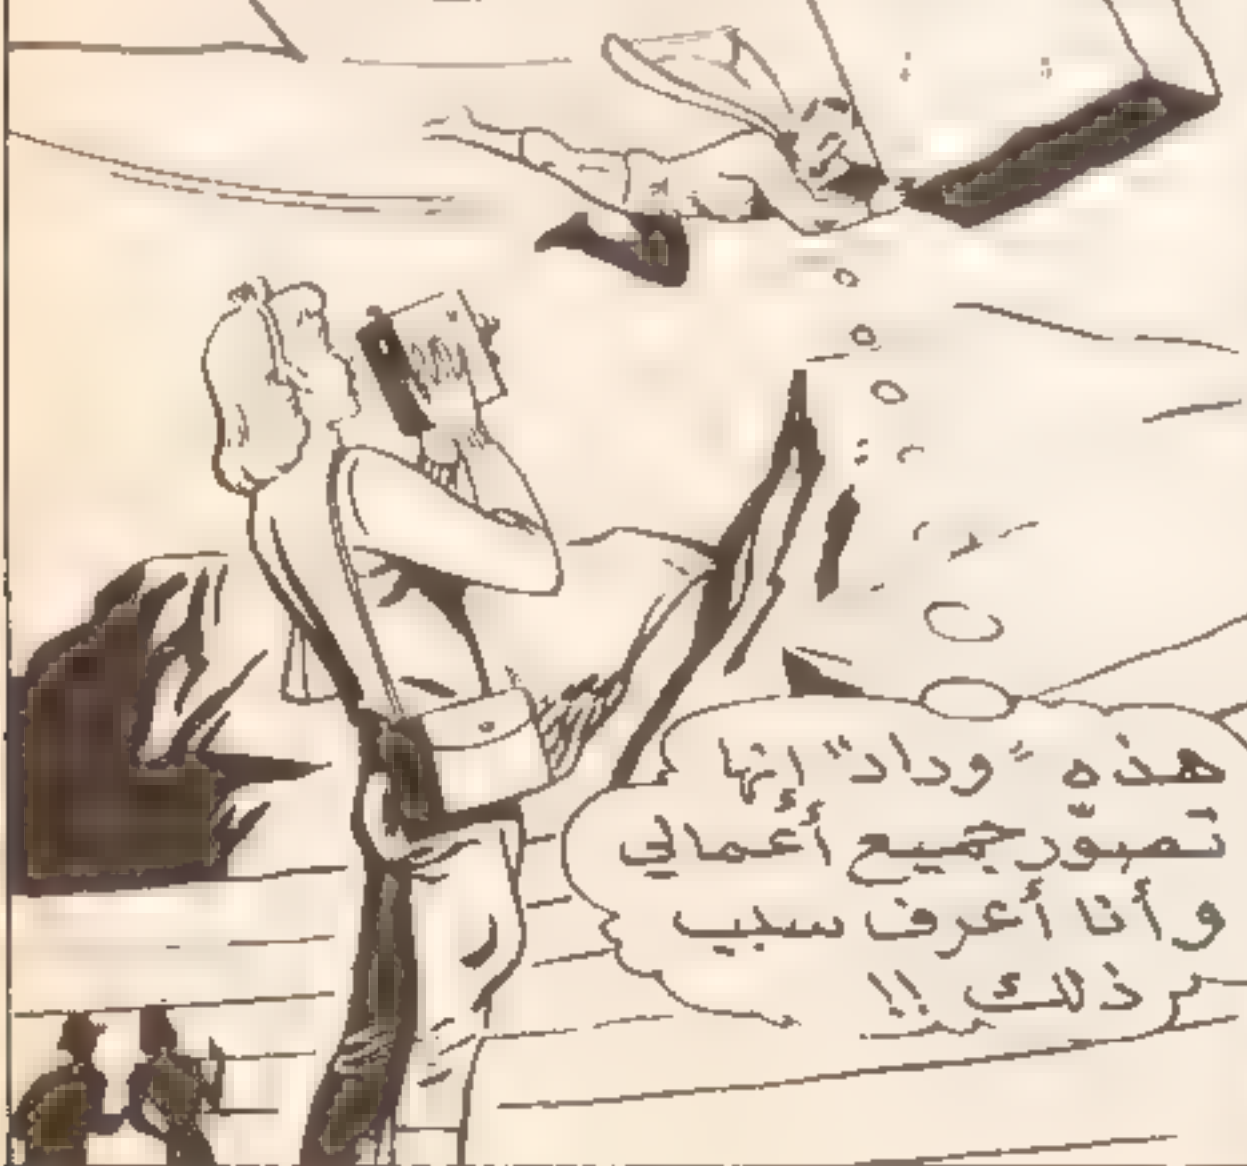 هذه "وداد" انها
تصوّر جميع أعمالي
وأنا أعرف سبب
ذلك !!